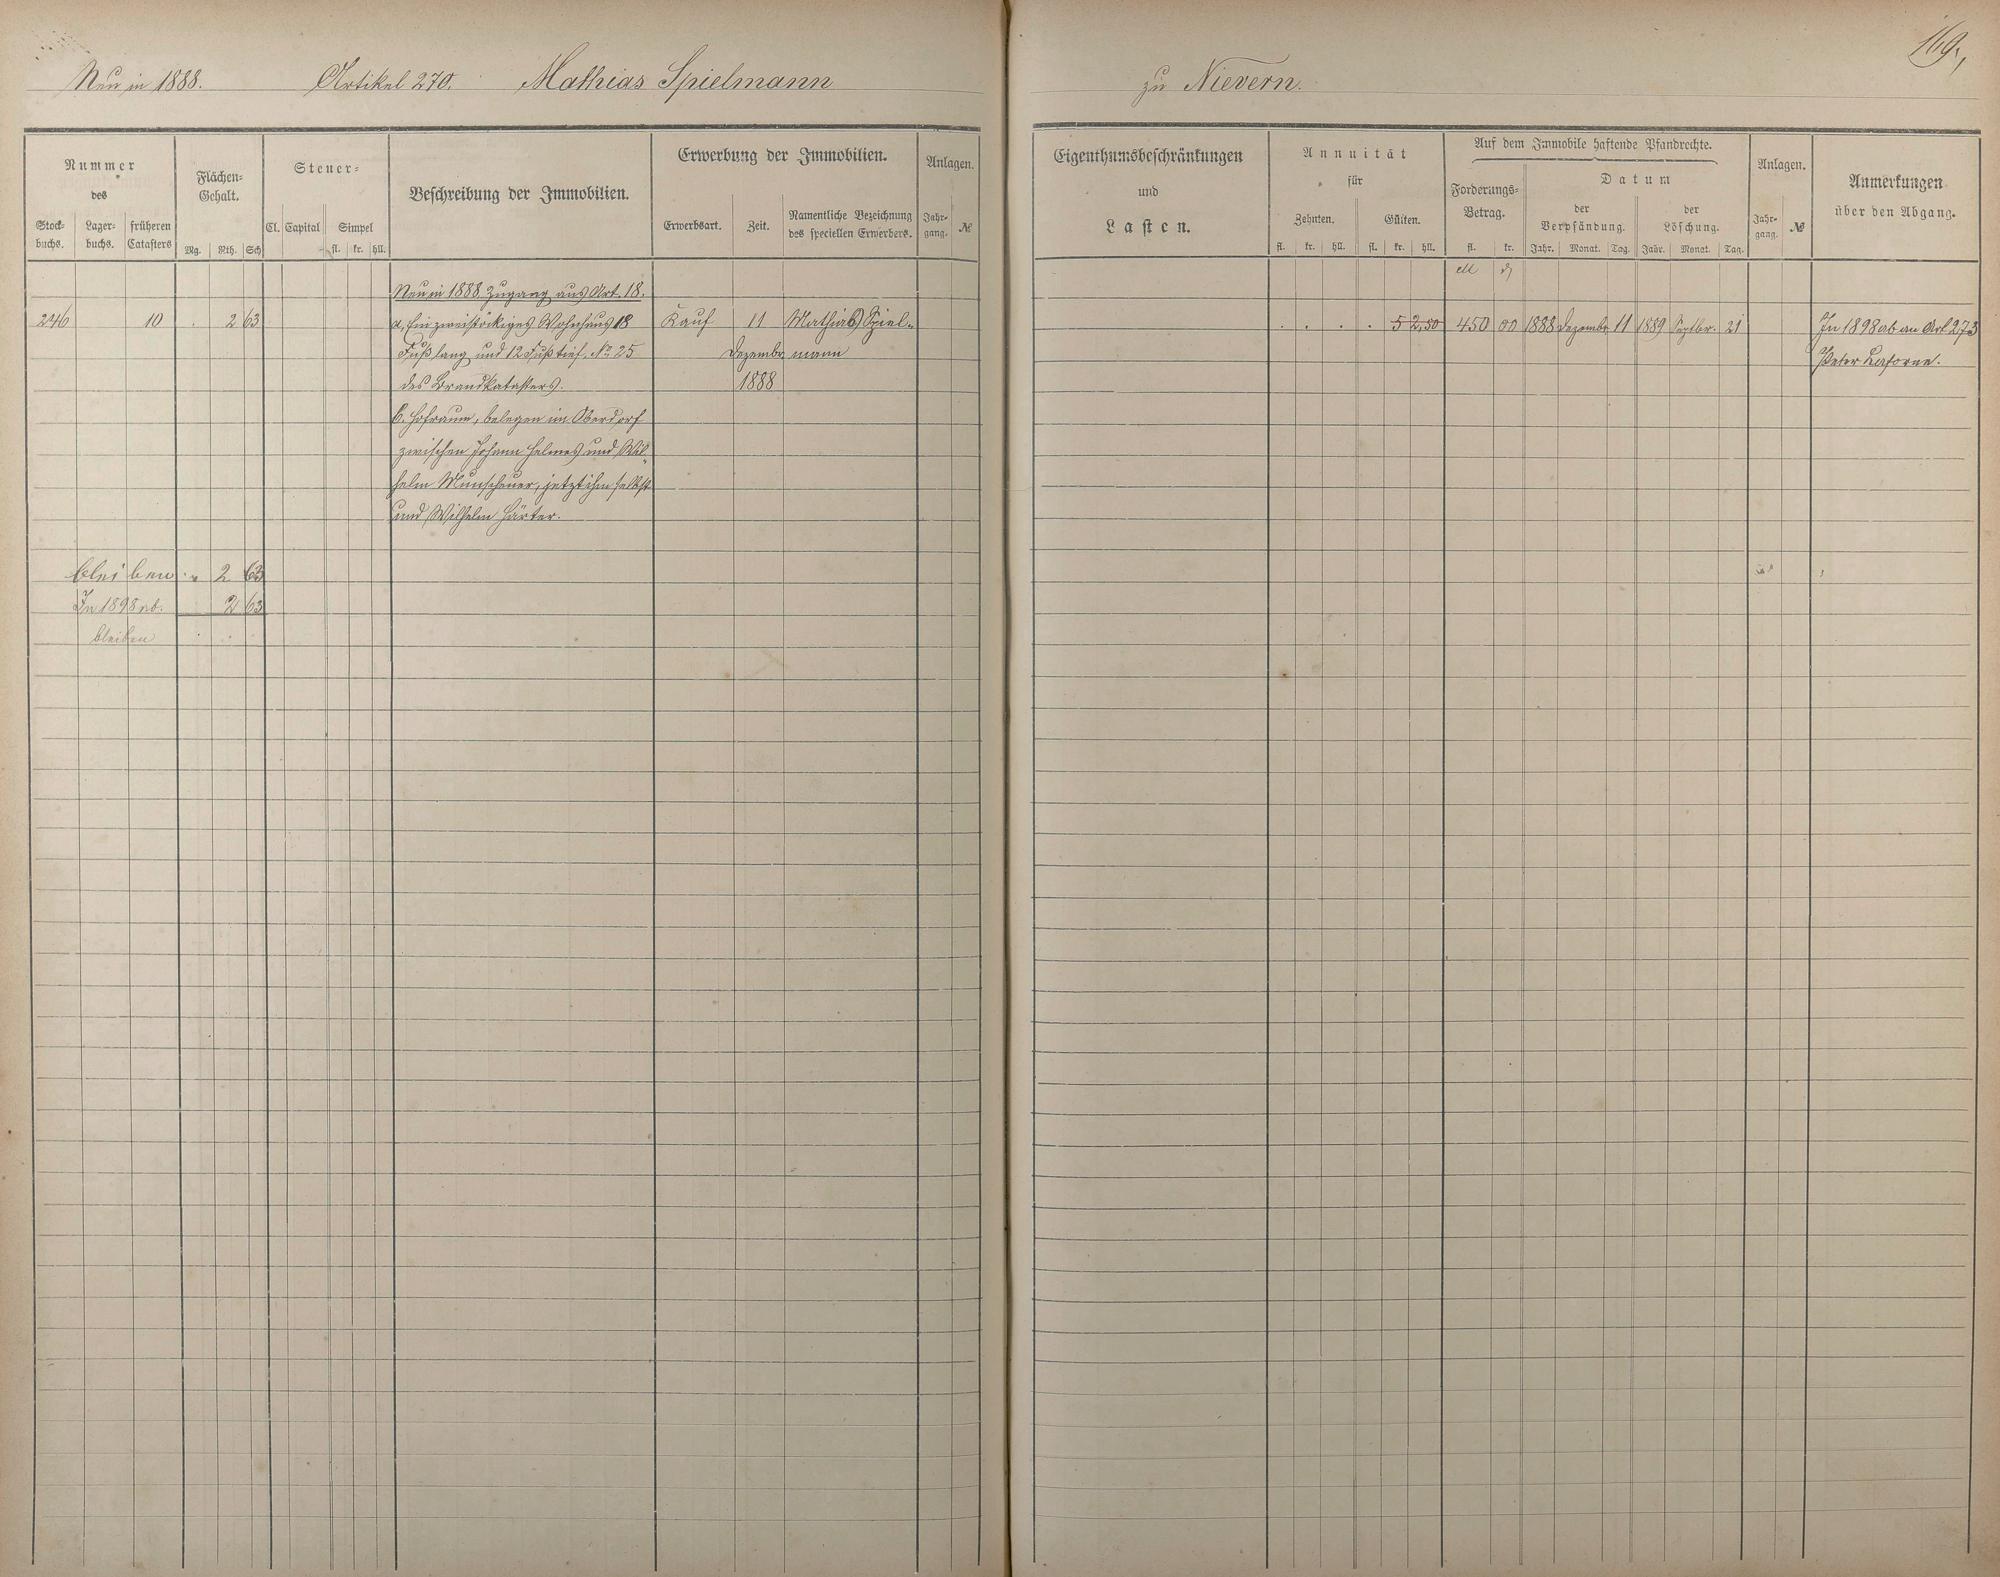 169.
Neu in 1888. Artikel 270. Mathias Spielmann zu Nievern.
Nummer des
Stock-buchs. Lager-buchs. früheren Catasters
Flächen-Gehalt.
Mg. Rth. Sch
Steuer-
Cl. Capital Simpel
fl. kr. hll.
Beschreibung der Immobilien.
Erwerbung der Immobilien.
Erwerbsart. Zeit. Namentliche Bezeichnung des speciellen Erwerbers.
Anlagen.
Jahr-gang. №
Eigenthumsbeschränkungen
und
Lasten.
Annuität
für
Zehnten. Gülten.
fl. kr. hll. fl. kr. hll.
Auf dem Immobile haftende Pfandrechte.
Forderungs-Betrag.
fl. kr.
Datum
der Verpfändung. der Löschung.
Jahr. Monat. Tag. Jahr. Monat. Tag.
Anlagen.
Jahr-gang. №
Anmerkungen
über den Abgang.
M ₰
Neu in 1888 Zugang aus Art. 18.
246 10 . 2 63 a, Ein zweistöckiges Wohnhaus 18 Kauf 11 Mathias Spiel- . . . . 5 2,50 450 00 1888 Dezembr 11 1889 Septbr. 21 In 1898 ab an Art 273
Fuß lang und 12 Fuß tief. No 25 Dezembr mann Peter
des Brandkatasters. 1888
b. Hofraum, belegen im Oberdorf
zwischen Johann Helmes und Wil-
helm Munschauer, jetzt ihm selbst
und Wilhelm Härter.
bleiben . " 2 63
In 1898 ab. 2 63
bleiben . . .